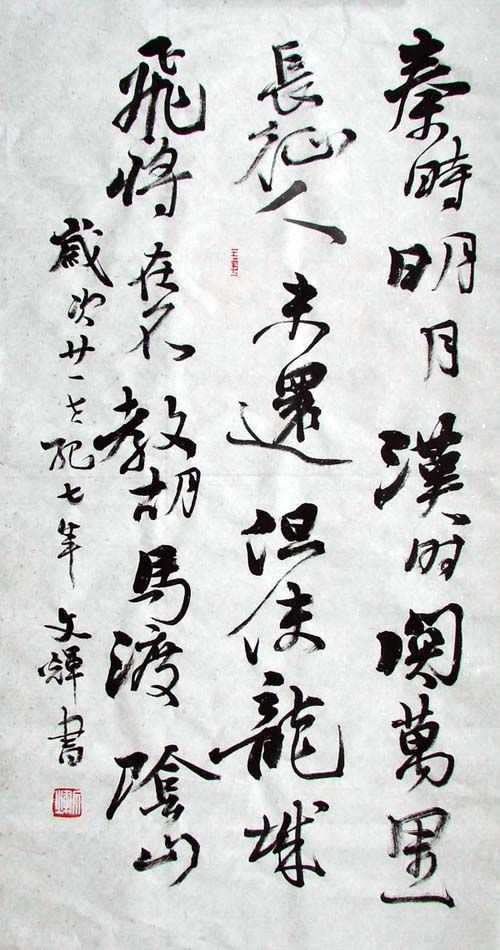 秦時明月漢时関萬里
長征人未還但使龍城
飛將在不教胡馬渡陰山
歲次廿一世紀七年文輝書